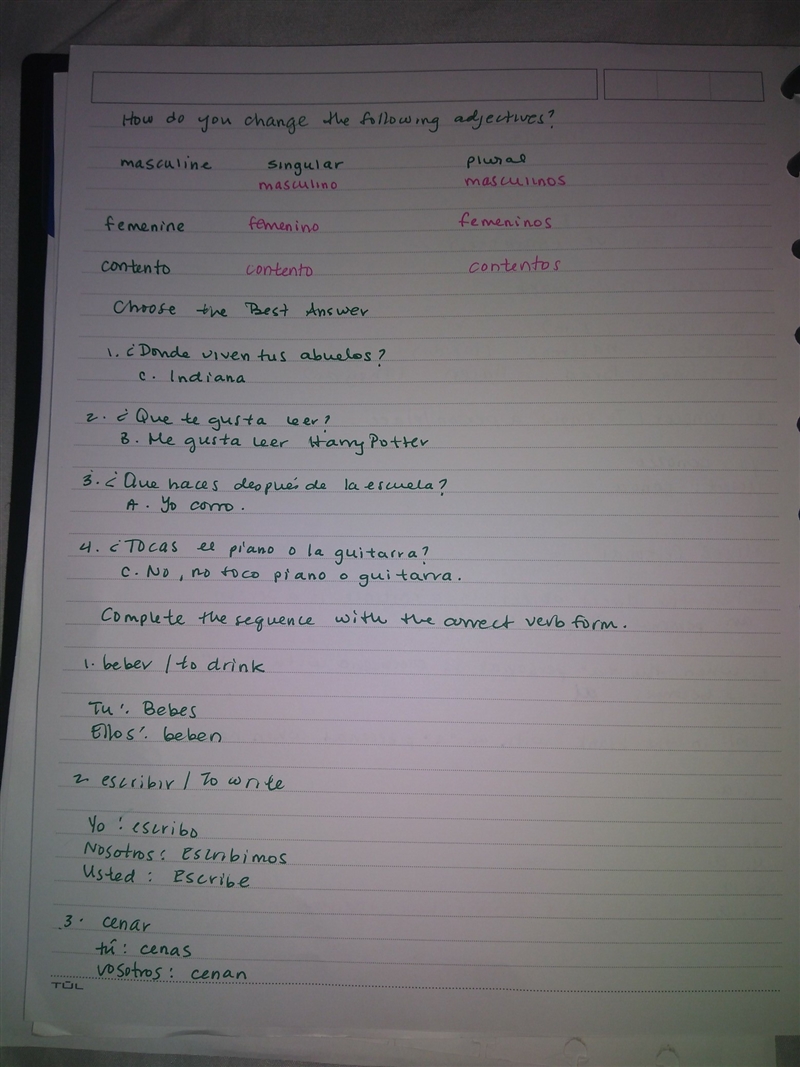 How do you change the following adjectives?
masculine singular plural
masculino masculinos
femenine femenino femeninos
contento contento contentos
Choose the Best Answer
1. ¿Donde viven tus abuelos?
C. Indiana
2. ¿Que te gusta leer?
B. Me gusta leer Harry Potter
3. ¿Que haces después de la escuela?
A. Yo corro.
4. ¿Tocas el piano o la guitarra?
C. No, no toco piano o guitarra.
Complete the sequence with the correct verb form.
1. beber / to drink
Tu: Bebes
Ellos: beben
2 escribir / To write
Yo: escribo
Nosotros: Escribimos
Usted: Escribe
3. cenar
tú: cenas
vosotros: cenan
TUL